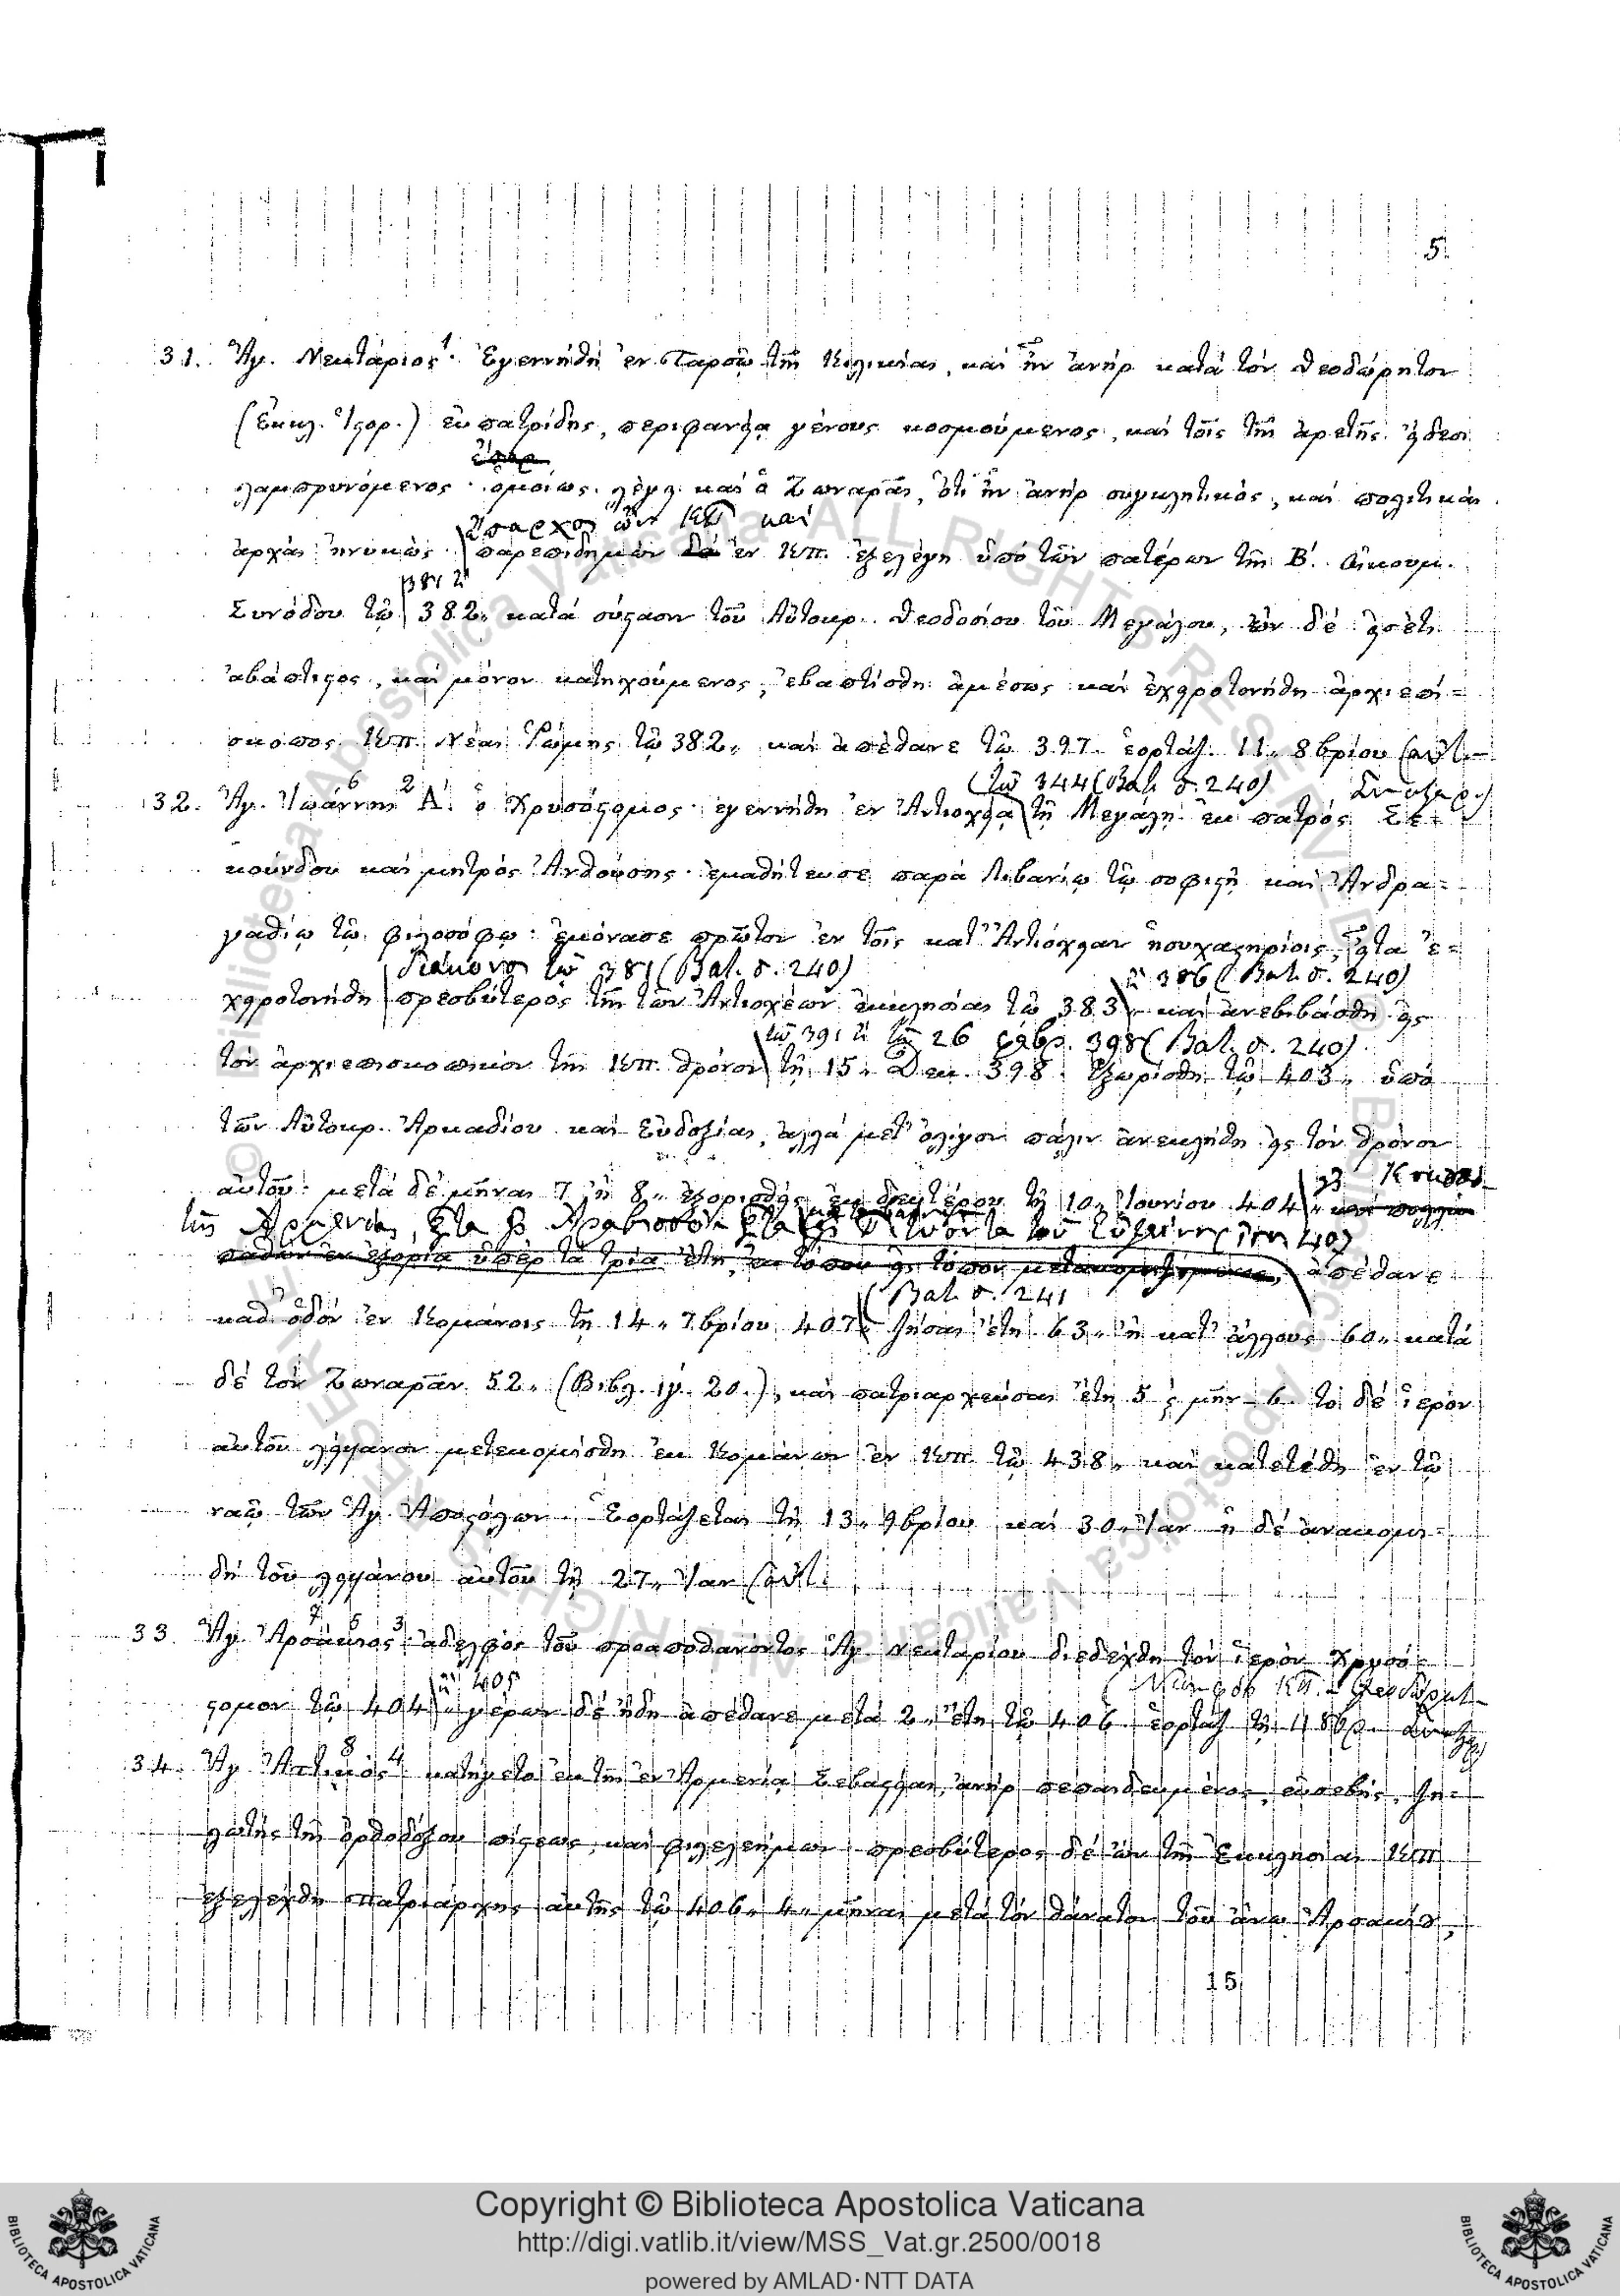 5.
31. Ἅγ. Νεκτάριος 1. Ἐγεννήθη ἐν Ταρσῷ τῆς Κιλικίας, καὶ ἦν ἀνὴρ κατὰ τὸν Θεοδώρητον
(Ἐκκλ. Ἱστορ.) εὐπατρίδης, περιφανείᾳ γένους κοσμούμενος, καὶ τοῖς τῆς ἀρετῆς εἴδεσι
λαμπρυνόμενος· ὁμοίως λέγει καὶ ὁ Ζωναρᾶς, ὅτι ἦν ἀνὴρ συγκλητικὸς, καὶ πολιτικὰς
Ὕπαρχος ὢν ΚΠ καὶ
ἀρχὰς ἠνυκώς· παρεπιδημῶν δὲ ἐν Κπ. ἐξελέγη ὑπὸ τῶν πατέρων τῆς Β΄. Οἰκουμ.
381 ἢ
Συνόδου τῷ 382, κατὰ σύστασιν τοῦ Αὐτοκρ. Θεοδοσίου τοῦ Μεγάλου, ὢν δὲ εἰσέτι
ἀβάπτιστος, καὶ μόνον κατηχούμενος, ἐβαπτίσθη ἀμέσως καὶ ἐχειροτονήθη ἀρχιεπί=
σκοπος Κπ. Νέας Ῥώμης τῷ 382, καὶ ἀπέθανε τῷ 397. ἑορτάζ. 11, 8βρίου
(τῷ 344 (Βαλ. σ. 240)
32. Ἅγ. Ἰωάννης 6 2 Α΄. ὁ Χρυσόστομος· ἐγεννήθη ἐν Ἀντιοχείᾳ τῇ Μεγάλῃ ἐκ πατρὸς Σε=
κούνδου καὶ μητρὸς Ἀνθούσης· ἐμαθήτευσε παρὰ Λιβανίῳ τῷ σοφιστῇ καὶ Ἀνδρα=
γαθίῳ τῷ φιλοσόφῳ· ἐμόνασε πρῶτον ἐν τοῖς κατ' Ἀντιόχειαν ἡσυχαστηρίοις, εἶτα ἐ=
διάκονος τῷ 381 (Βαλ. σ. 240) ἢ 386 (Βαλ. σ. 240)
χειροτονήθη πρεσβύτερος τῆς τῶν Ἀντιοχέων ἐκκλησίας τῷ 383, καὶ ἀνεβιβάσθη εἰς
τῷ 391 ἢ τῇ 26 φεβρ. 398 (Βαλ. σ. 240)
τὸν ἀρχιεπισκοπικὸν τῆς Κπ. θρόνον τῇ 15, Δεκ. 398. Ἐξωρίσθη τῷ 403, ὑπὸ
τῶν Αὐτοκρ. Ἀρκαδίου καὶ Εὐδοξίας, ἀλλὰ μετ' ὀλίγον πάλιν ἀνεκλήθη εἰς τὸν θρόνον
αὐτοῦ· μετὰ δὲ μῆνας 7 ἢ 8, ἐξορισθεὶς ἐκ δευτέρου τῇ 10, Ἰουνίου 404, καὶ πολλὰ
τῆς Ἀρμενίας, εἶτα εἰς Ἀραβισσὸν εἶτα
παθὼν ἐν ἐξορίᾳ ὑπὲρ τὰ τρία ἔτη, ἐκ τόπου εἰς τόπον μετακομιζόμενος, ἀπέθανε
(Βαλ. σ. 241
καθ' ὁδὸν ἐν Κομάνοις τῇ 14, 7βρίου 407, ζήσας ἔτη 63, ἢ κατ' ἄλλους 60, κατὰ
δὲ τὸν Ζωναρᾶν 52, (Βιβλ. ιγ. 20.), καὶ πατριαρχεύσας ἔτη 5 ϛ μῆν 6. τὸ δὲ ἱερὸν
αὐτοῦ λείψανον μετεκομίσθη ἐκ Κομάνων ἐν Κπ. τῷ 438, καὶ κατετέθη ἐν τῷ
ναῷ τῶν Ἁγ. Ἀποστόλων. Ἑορτάζεται τῇ 13, 9βρίου καὶ 30, Ἰαν ἡ δὲ ἀνακομι=
δὴ τοῦ λειψάνου αὐτοῦ τῇ 27, Ἰαν
33. Ἅγ. Ἀρσάκιος 7 3· ἀδελφὸς τοῦ προαποθανόντος Ἁγ. Νεκταρίου διεδέχθη τὸν ἱερὸν Χρυσό=
ἢ 405
στομον τῷ 404, γέρων δὲ ἤδη ἀπέθανε μετὰ 2, ἔτη τῷ 406. ἑορτάζ τῇ 11 8βρ.
34. Ἅγ. Ἀττικὸς 8 4 κατήγετο ἐκ τῆς ἐν Ἀρμενίᾳ Σεβαστείας, ἀνὴρ πεπαιδευμένος, εὐσεβὴς, ζη=
λωτὴς τῆς ὀρθοδόξου πίστεως, καὶ φιλελεήμων πρεσβύτερος δὲ ὢν τῆς Ἐκκλησίας Κπ
ἐξελέχθη πατριάρχης αὐτῆς τῷ 406, 4, μῆνας μετὰ τὸν θάνατον τοῦ ἄνω Ἀρσακίου,
15
Copyright © Biblioteca Apostolica Vaticana
http://digi.vatlib.it/view/MSS_Vat.gr.2500/0018
powered by AMLAD·NTT DATA
BIBLIOTECA APOSTOLICA VATICANA
BIBLIOTECA APOSTOLICA VATICANA